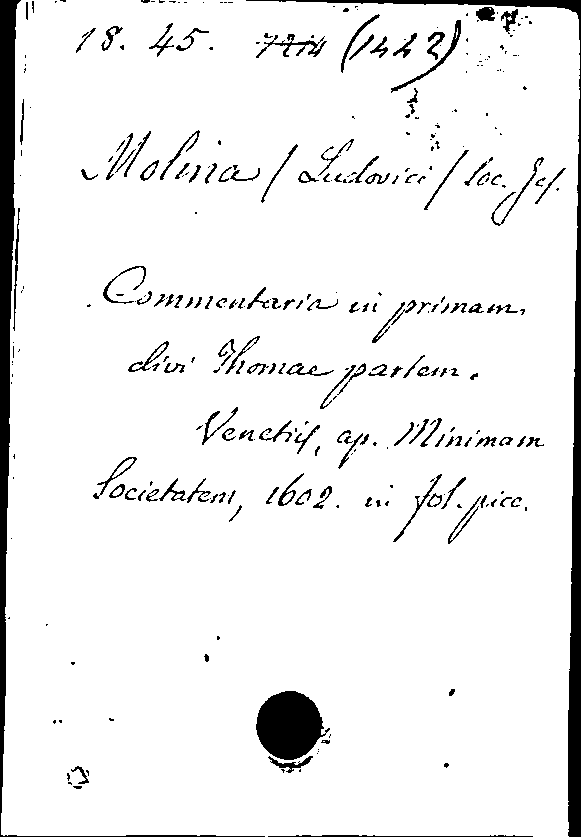 18. 45. 7214 (1442)
Molina / Ludovici / Soc. Jes.
Commentaria in primam
divi Thomae partem.
Venetiis, ap. Minimam
Societatem, 1602. in fol. picc.